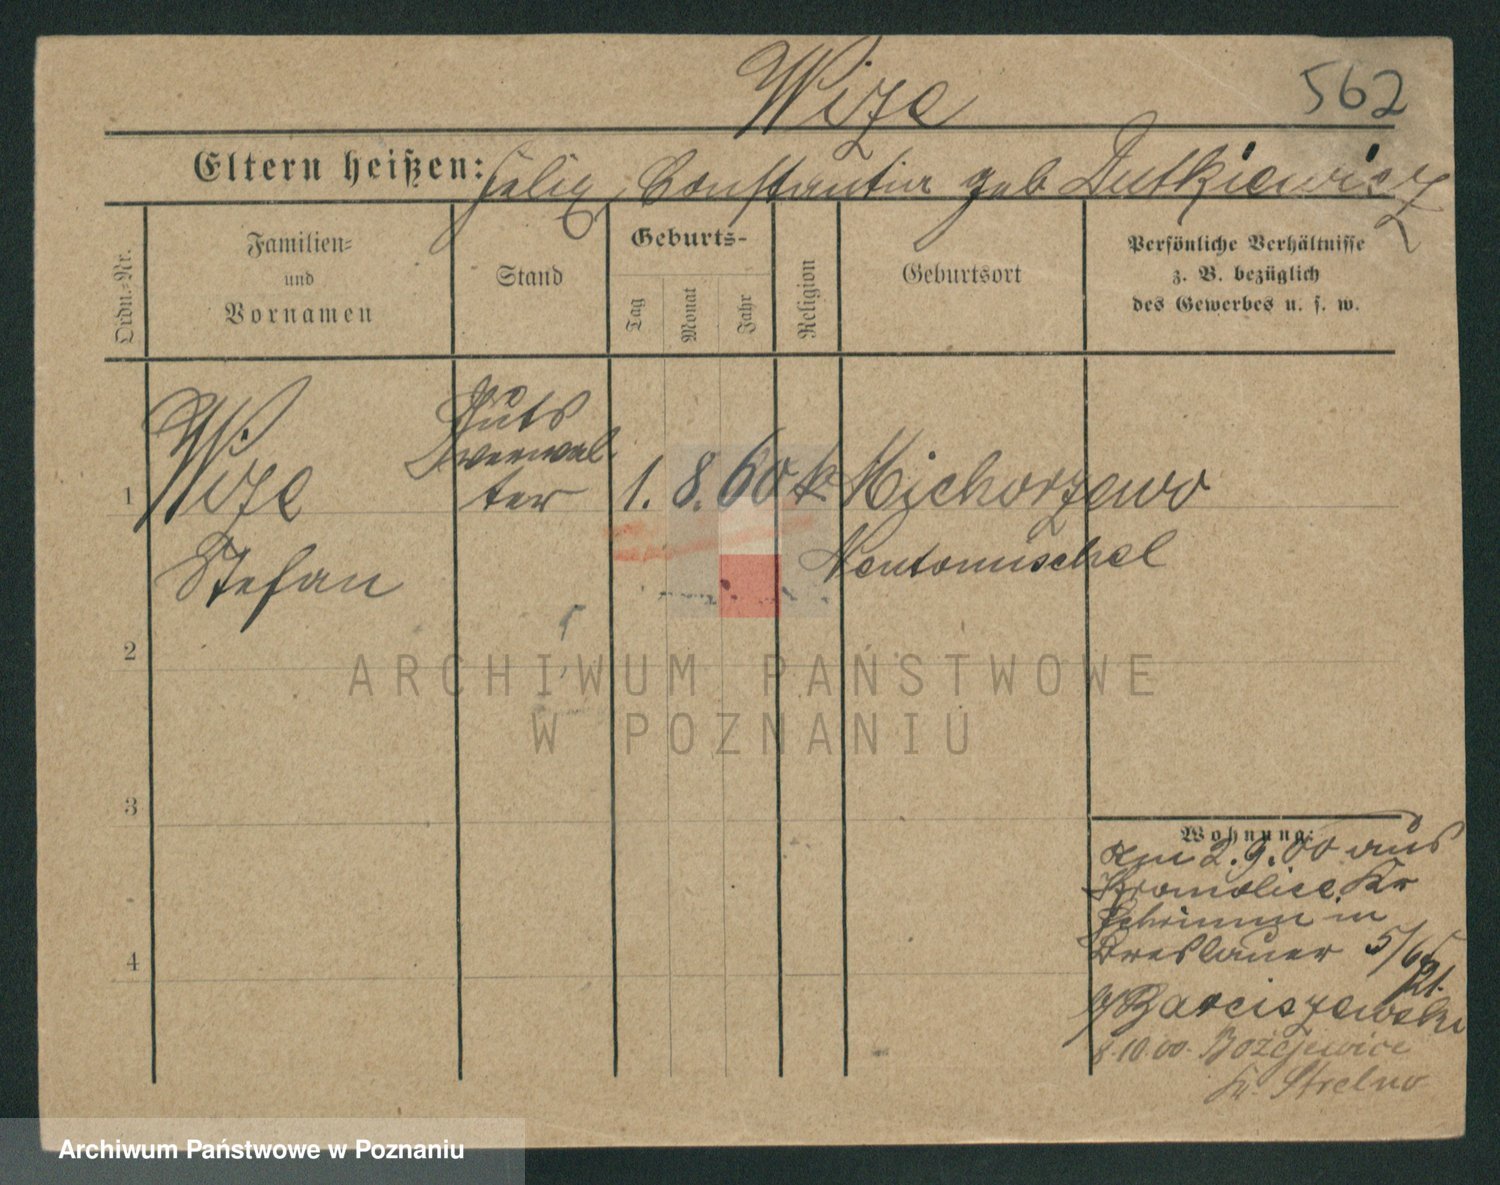 Wize
562
Eltern heißen: Felix, Constantia geb Dutkiewicz
Ordn.-Nr.
Familien-
und
Vornamen
Stand
Geburts-
Tag
Monat
Jahr
Religion
Geburtsort
Persönliche Verhältnisse
z. B. bezüglich
des Gewerbes u. s. w.
1
Wize
Stefan
Guts
verwal
ter
1. 8. 60 k
Michorzewo
Neutomischel
2
ARCHIWUM PAŃSTWOWE
W POZNANIU
3
4
Wohnung:
am 2.9.00 aus
Bromolice Kr
Schrimm in
Breslauer 5/6
Barciszewski
8.10.00. Bożejewice
Kr. Strelno
Archiwum Państwowe w Poznaniu